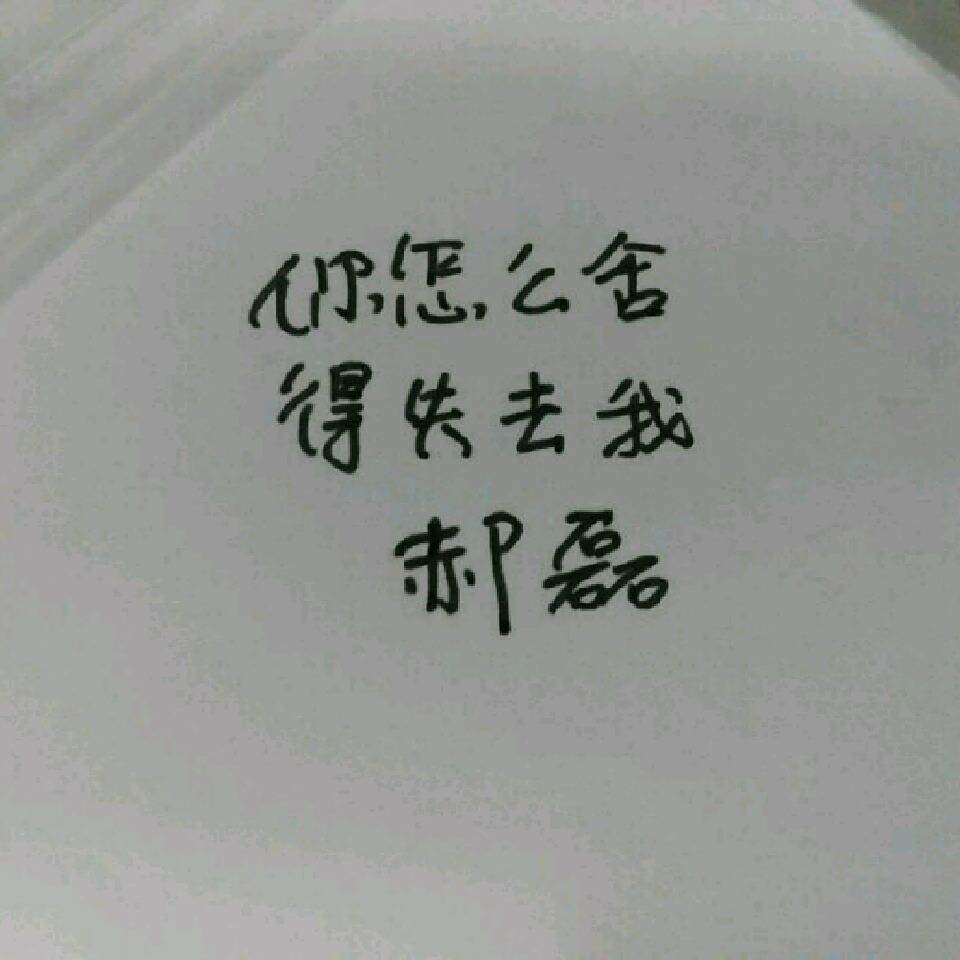 你怎么舍
得失去我
郝磊